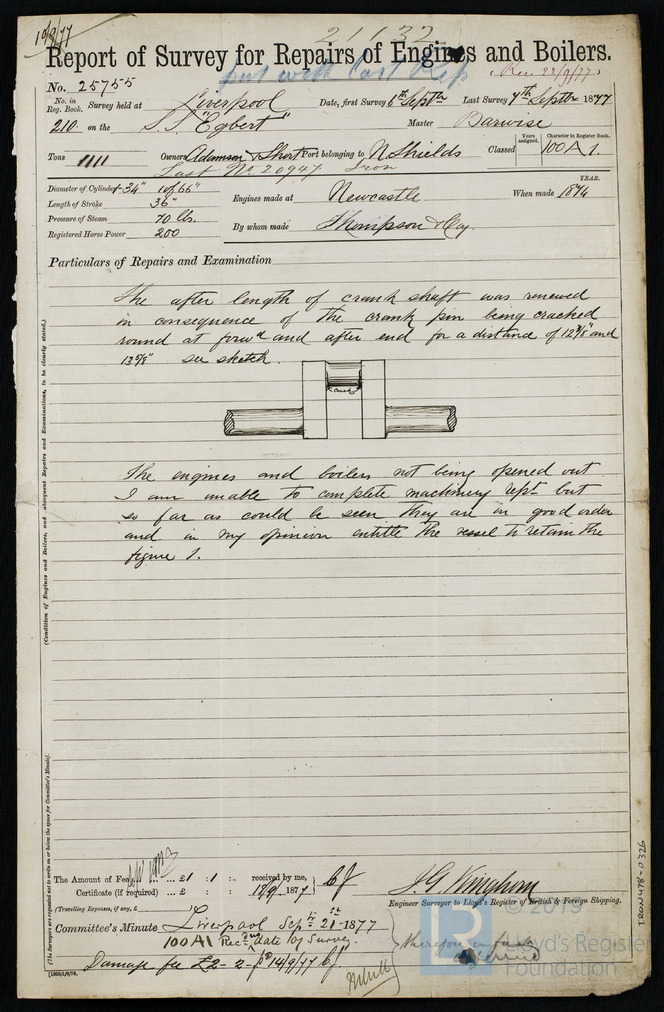 10/9/77
21132
Report of Survey for Repairs of Engines and Boilers.
No. 25755
put with last Rep
Rec 22/9/77
No. in Reg. Book.
Survey held at Liverpool Date, first Survey 6th Septbr Last Survey 7th Septbr 1877
210 on the S.S. "Egbert" Master Barwise
Tons 1111 Owners Adamson & Short Port belonging to N. Shields Classed
Years assigned.
Character in Register Book.
100 A 1.
Last No. 20947 Iron
Diameter of Cylinder 1-34" 1 of 66"
Length of Stroke 36"
Pressure of Steam 70 lbs.
Registered Horse Power 200
Engines made at Newcastle When made 1874
YEAR.
By whom made Thompson & Coy.
Particulars of Repairs and Examination
The after length of crank shaft was renewed
in consequence of the crank pin being cracked
round at forwd and after end for a distance of 12 3/8" and
13 5/8" see sketch.
Crack
The engines and boilers not being opened out
I am unable to complete machinery rept but
so far as could be seen they are in good order
and in my opinion entitle the vessel to retain the
figure 1.
(Condition of Engines and Boilers, and subsequent Repairs and Examinations, to be clearly stated.)
(The Surveyors are requested not to write on or below the space for Committee's Minute).
The Amount of Fee ... £1 : 1 : . received by me,
Certificate (if required) ... £ : : 18/9/1877
(Travelling Expenses, if any, £
J. G. Kinghorn
Engineer Surveyor to Lloyd's Register of British & Foreign Shipping.
Committee's Minute Liverpool Sep 21st 1877
100 A1 Rec date of Survey
Damage fee £2-2- pd 14/9/77
IRON478-0326
© 2019
LR
Lloyd's Register
Foundation